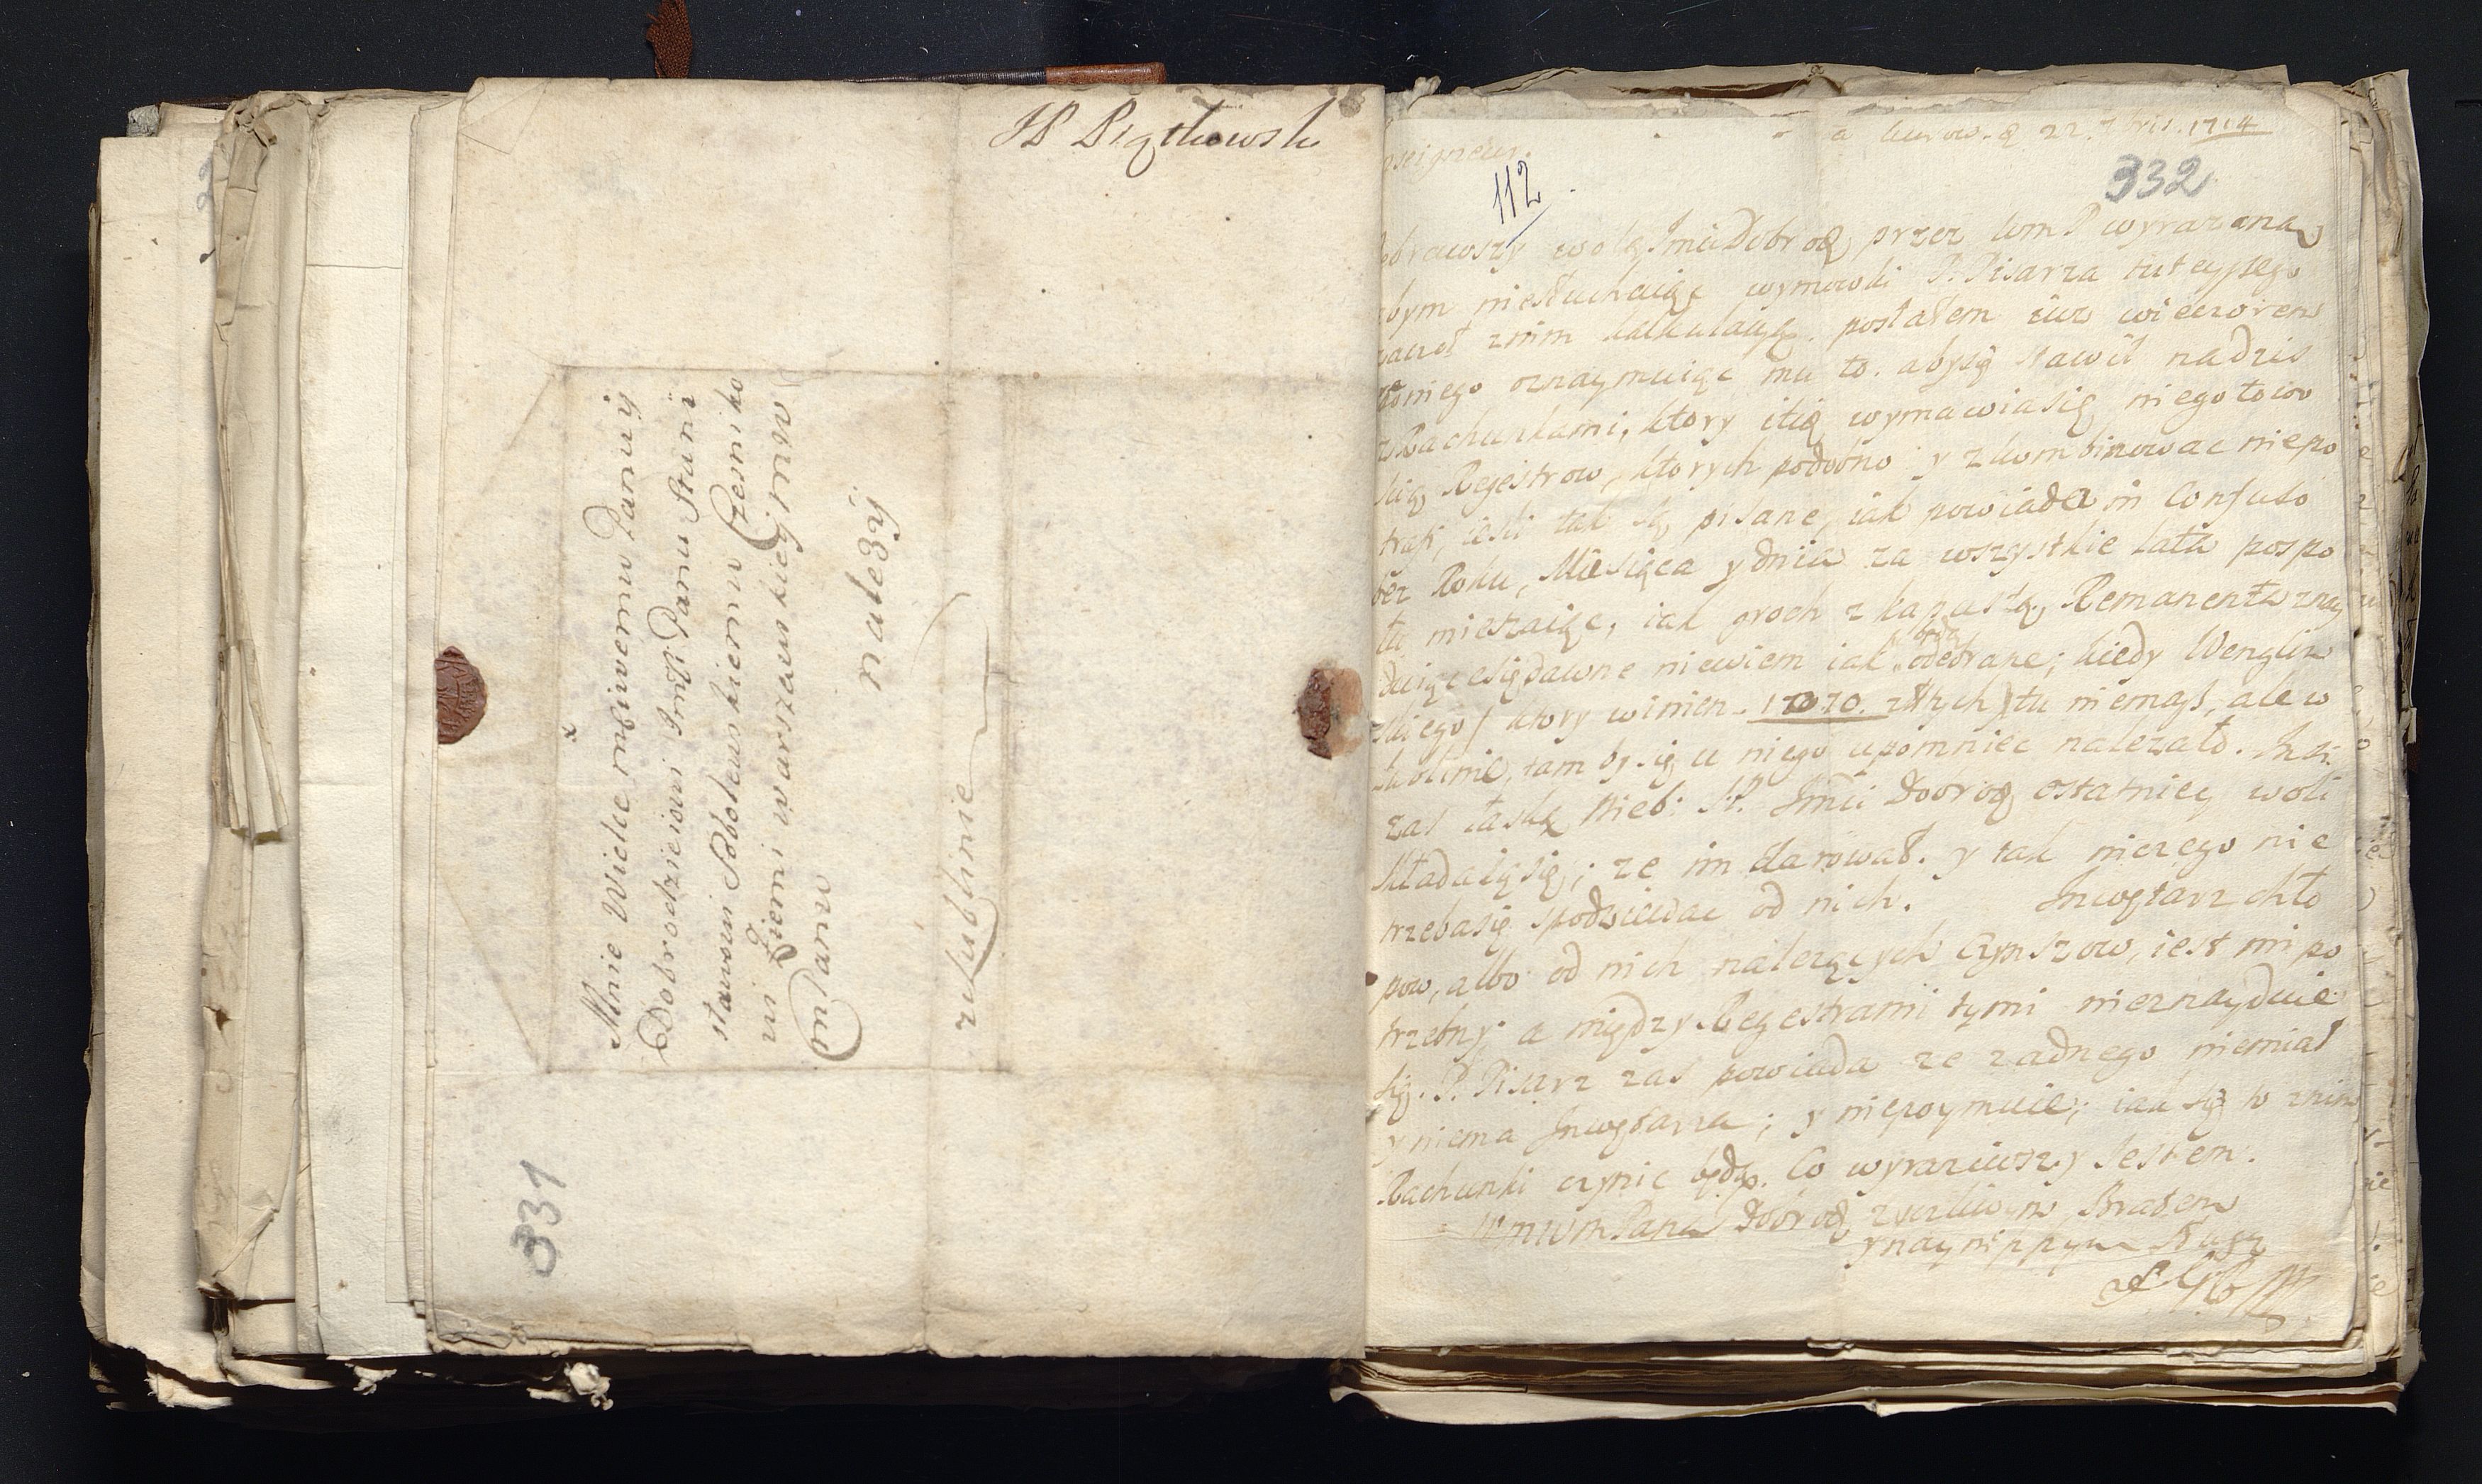 JP Piątkowski
Mnie Wielce mściwemu Panu y
Dobrodzieiowi Jmsci Panu Stani
sławowi Sobolewskiemu Czesniko
wi Ziemi warszawskiey mw
m Panu
należy
w Lublinie
331
a kurow. d 22. 7bris. 1714
nseigneur.
112
332
debrawszy wolą Jmci Dobrog przez Jom P wyrazoną
abym niesłuchaiąc wymowki P. Pisarza tuteyszego
zaczoł znim kalkulacyą. posłałem iuz wieczorem
doniego oznaymuiąc mu to. abysię stawił nadzis
zRachunkami, ktory itię wymawiasię niegotowo
scią Regestrow, ktorych podobno y zkombinowac niepo
trafi, iesli tak są pisane, iak powiada in Confuso
bez Roku, Miesiąca ydnia za wszystkie lata pospo
łu mieszaiąc, iak groch z kapustą, Remanenta znay
duiącesię dawne niewiem iak będą odebrane; kiedy Wenglin
skiego / ktory winien 17070. złłtych / tu niemasz, ale w
Lublinie, tam by się u niego upomniec nalezało. Inni
zas łaską Nieb: SP. Jmci Dobrog ostatniey woli
składaiąsię; ze im darował. y tak niczego nie
trzebasię spodziewac od nich. Inwętarz chło
pow, albo od nich nalezących czynszow, iest mi po
trzebny: a między Regestrami tymi nieznayduie
się. P. Pisarz zas powiada ze zadnego niemiał
yniema Inwętarza; y niepoymuie; iak się to znim
Rachunki czynic będą. Co wyraziwszy Jestem.
WmwmPana Dobrog zyczliwym Bratem
ynaynizszym Sługą